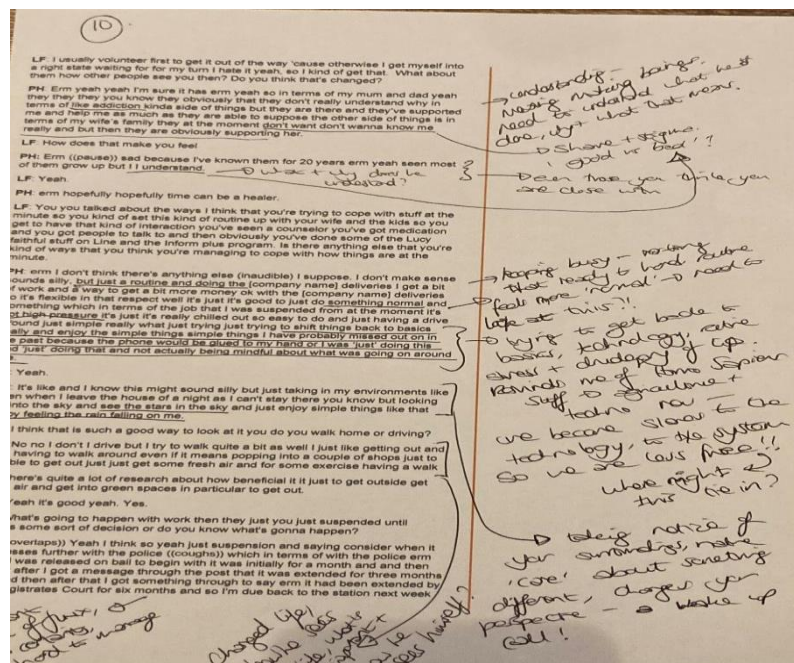 10
LF: I usually volunteer first to get it out of the way 'cause otherwise I get myself into
a right state waiting for for my turn I hate it yeah, so I kind of get that. What about
them how other people see you then? Do you think that's changed?
PH: Erm yeah yeah I'm sure it has erm yeah so in terms of my mum and dad yeah
they they they you know they obviously that they don't really understand why in
terms of like addiction kinda side of things but they are there and they've supported
me and help me as much as they are able to suppose the other side of things is in
terms of my wife's family they at the moment don't want don't wanna know me
really and but then they are obviously supporting her.
LF: How does that make you feel
PH: Erm ((pause)) sad because I've known them for 20 years erm yeah seen most
of them grow up but I I understand.
LF: Yeah.
PH: erm hopefully hopefully time can be a healer.
LF: You you talked about the ways I think that you're trying to cope with stuff at the
minute so you kind of set this kind of routine up with your wife and the kids so you
get to have that kind of interaction you've seen a counselor you've got medication
and you got people to talk to and then obviously you've done some of the Lucy
faithful stuff on Line and the Inform plus program. Is there anything else that you're
kind of ways that you think you're managing to cope with how things are at the
minute.
PH: erm I don't think there's anything else (inaudible) I suppose, I don't make sense
ounds silly, but just a routine and doing the [company name] deliveries I get a bit
f work and a way to get a bit more money ok with the [company name] deliveries
o it's flexible in that respect well it's just it's good to just do something normal and
omething which in terms of the job that I was suspended from at the moment it's
ot high pressure it's just it's really chilled out so easy to do and just having a drive
round just simple really what just trying just trying to shift things back to basics
ally and enjoy the simple things simple things I have probably missed out on in
e past because the phone would be glued to my hand or I was 'just' doing this
d 'just' doing that and not actually being mindful about what was going on around
Yeah.
It's like and I know this might sound silly but just taking in my environments like
en when I leave the house of a night as I can't stay there you know but looking
into the sky and see the stars in the sky and just enjoy simple things like that
y feeling the rain falling on me.
I think that is such a good way to look at it you do you walk home or driving?
No no I don't drive but I try to walk quite a bit as well I just like getting out and
having to walk around even if it means popping into a couple of shops just to
ble to get out just just get some fresh air and for some exercise having a walk
here's quite a lot of research about how beneficial it it just to get outside get
air and get into green spaces in particular to get out.
eah it's good yeah. Yes.
hat's going to happen with work then they just you just suspended until
s some sort of decision or do you know what's gonna happen?
overtaps)) Yeah I think so yeah just suspension and saying consider when it
sses further with the police ((coughs)) which in terms of with the police erm
was released on bail to begin with it was initially for a month and and then
after I got a message through the post that it was extended for three months
d then after that I got something through to say erm it had been extended by
gistrates Court for six months and so I'm due back to the station next week
understanding -
meaning making beings.
need to understand what he's
done, why + what that means.
Shame + stigma.
'good vs bad'?
what + why does he
understand?
Even those you
are close with
Keeping busy - working
need to
feel more 'normal'
at this?!
trying to get back to
basics, technology,
stress +
reminds me of Homo Sapiens
stuff
techno now -
we become slaves to the
technology, to the system
So we are less free!!
where might
this tie in?
taking notice of
your surroundings, make
'care' about something
different, changes your
perspective - a wake up
call!
Changed life,
sees himself?